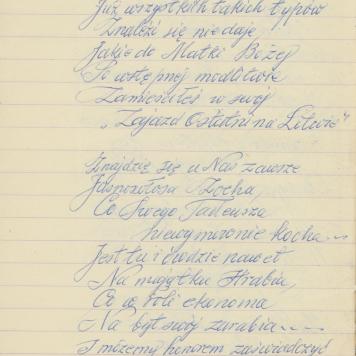 Już wszystkich takich typów
Znaleźć się nie daje,
Jakie do Matki Bożej
Po wstępnej modlitwie
Zamieściłeś w swój
„Zajazd Ostatni na Litwie"
Znajdzie się u Nas zawsze
Jasnowłosa Zocha,
Co Swego Tadeusza
niewymownie kocha...
Jest tu i chodzie nawet
Na majątku Hrabia,
Co w roli ekonoma
Na byt swój zarabia...
I możemy honorem zaświadczyć